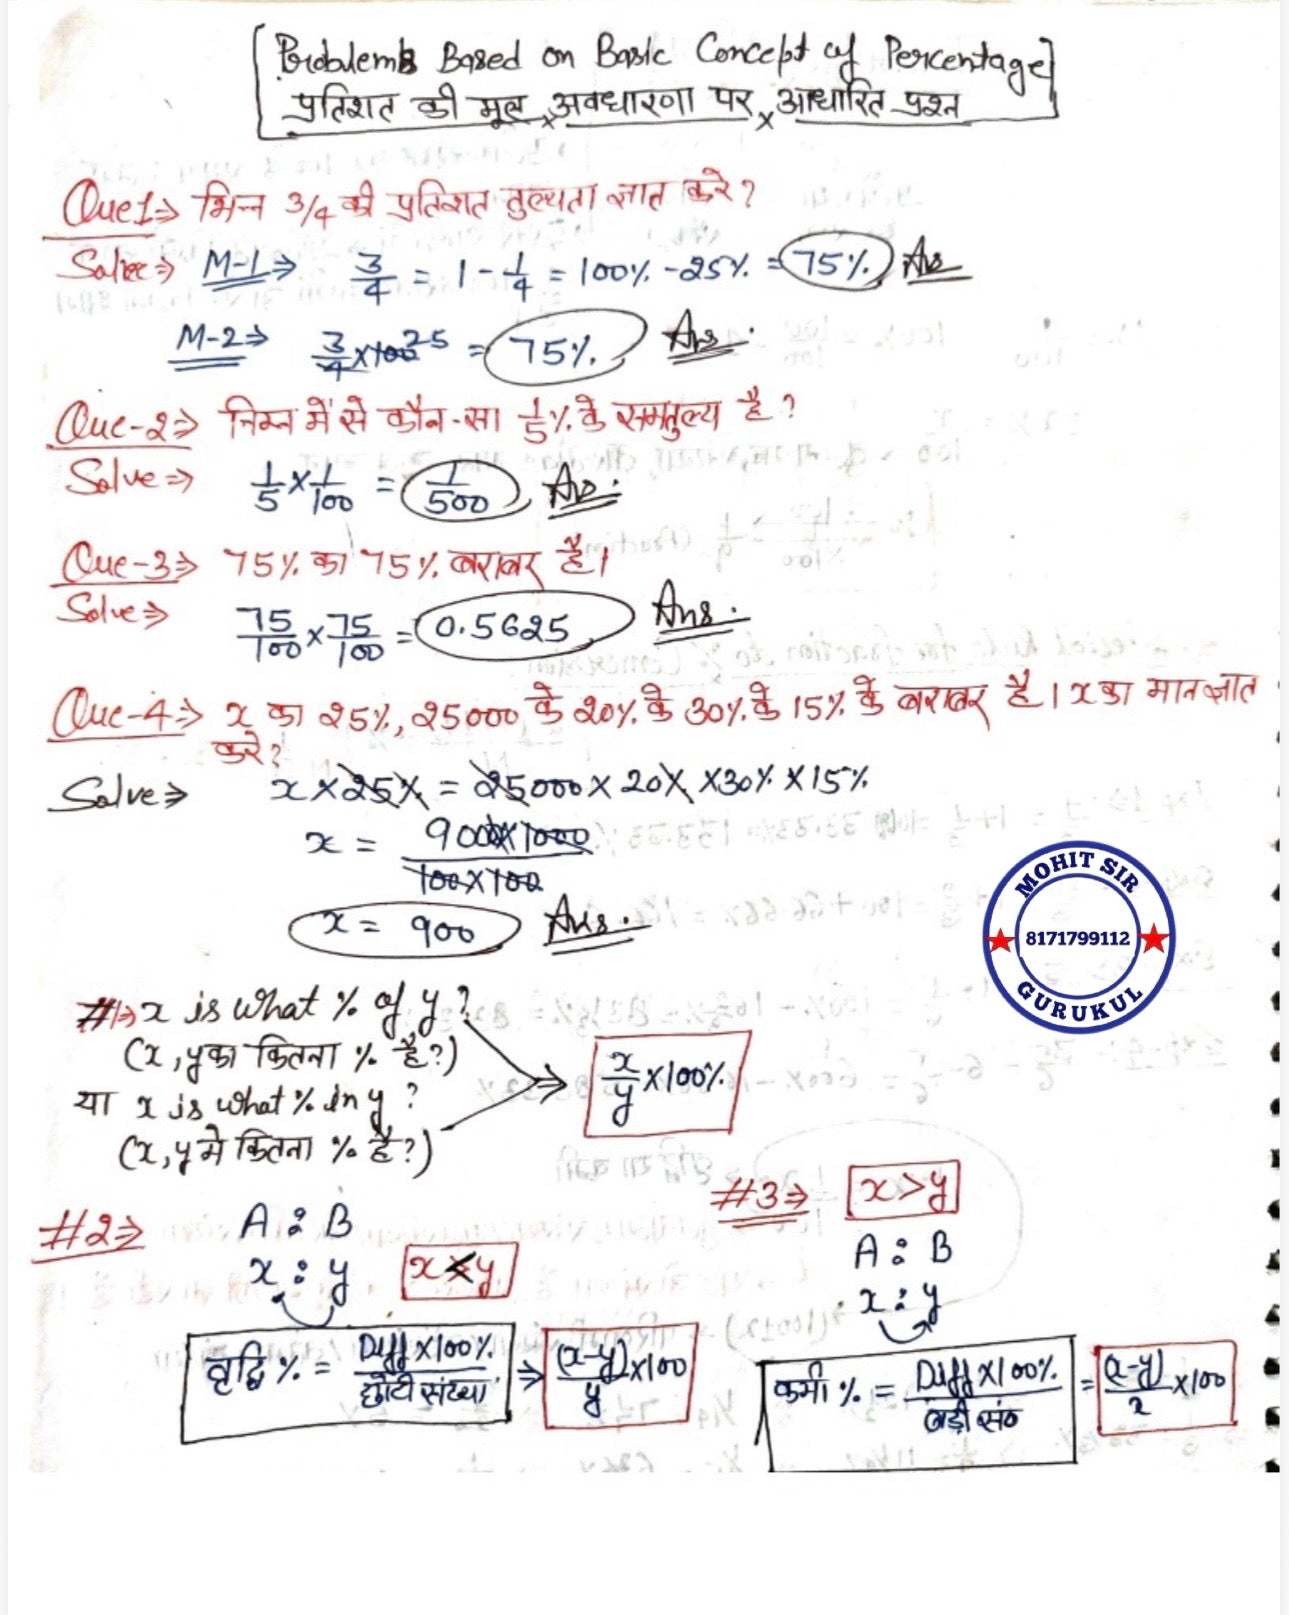 Problems Based on Basic Concept of Percentage
प्रतिशत की मूल अवधारणा पर आधारित प्रश्न
Que1⇒ भिन्न 3/4 की प्रतिशत तुल्यता ज्ञात करे?
Solve⇒ M-1⇒ 3/4 = 1 - 1/4 = 100% - 25% = 75% Ans
M-2⇒ 3/4 × 100 25 = 75% Ans.
Que-2⇒ निम्न में से कौन-सा 1/5% के समतुल्य है?
Solve⇒ 1/5 × 1/100 = 1/500 Ans.
Que-3⇒ 75% का 75% बराबर है।
Solve⇒ 75/100 × 75/100 = 0.5625 Ans.
Que-4⇒ x का 25%, 25000 के 20% के 30% के 15% के बराबर है। x का मान ज्ञात
करे?
Solve⇒ x × 25% = 25000 × 20% × 30% × 15%
x = 9000 × 1000 / 100 × 100
x = 900 Ans.
MOHIT SIR
8171799112
GURUKUL
#1⇒ x is what % of y?
(x, y का कितना % है?)
या x is what % in y?
(x, y मे कितना % है?)
⇒ x/y × 100%
#2⇒ A : B
x : y x < y
वृद्धि % = Diff × 100% / छोटी संख्या ⇒ (x-y)/y × 100
#3⇒ x > y
A : B
x : y
कमी % = Diff × 100% / बड़ी सं० = (x-y)/x × 100